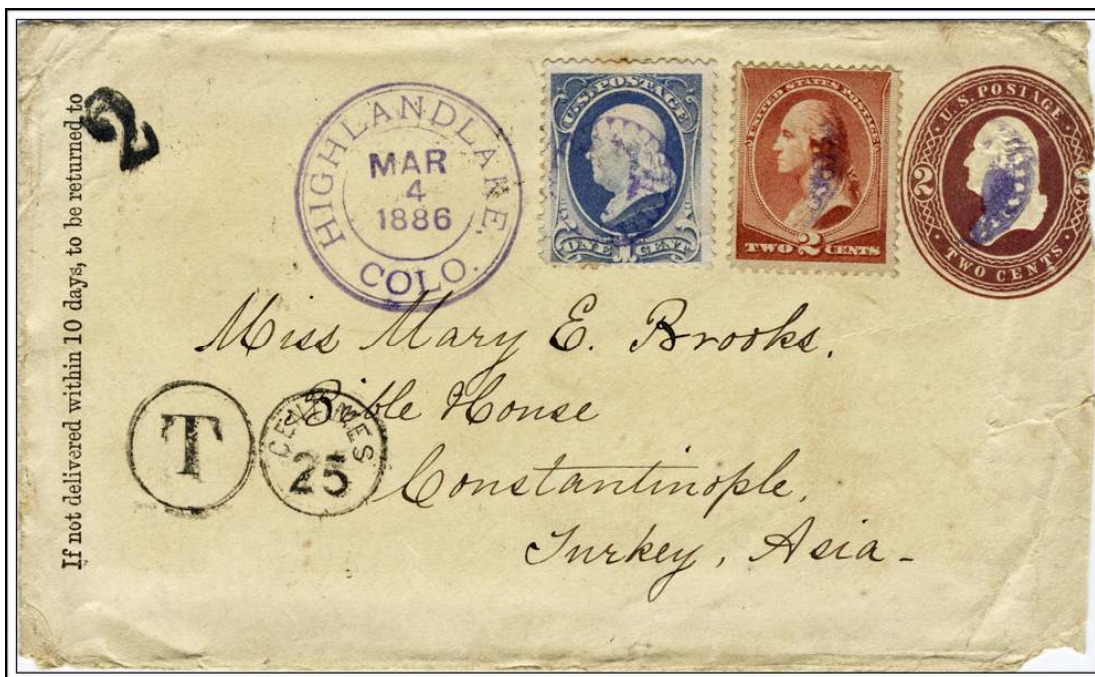 If not delivered within 10 days, to be returned to
2
HIGHLANDLAKE,
MAR
4
1886
COLO.
U.S. POSTAGE
ONE 1 CENT
UNITED STATES POSTAGE
TWO 2 CENTS
U.S. POSTAGE
2 2
TWO CENTS
Miss Mary E. Brooks,
Bible House
Constantinople,
Turkey, Asia-
T
CENTIMES
25